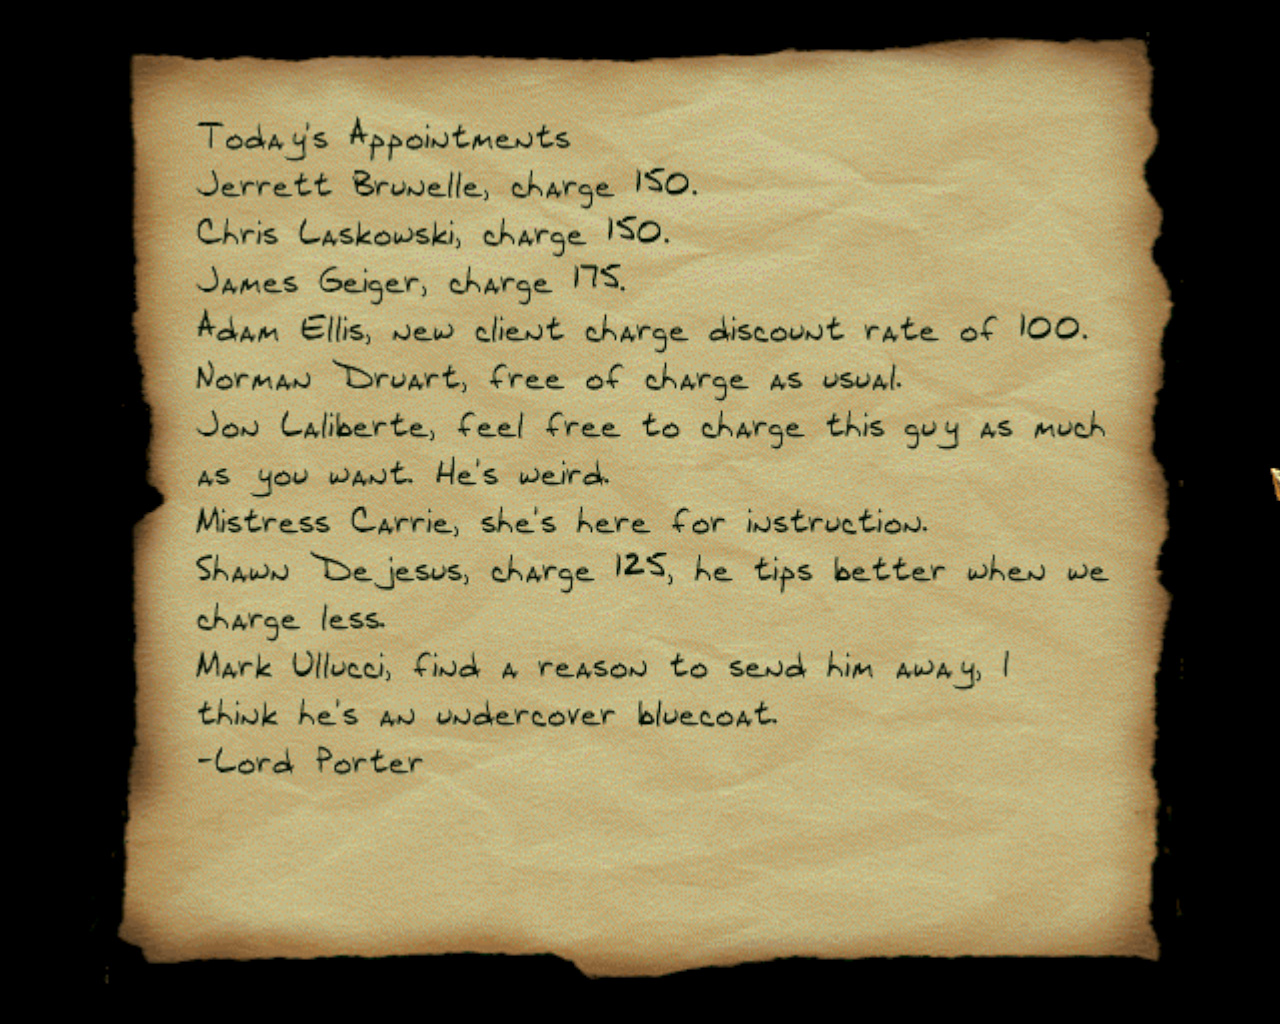 Today's Appointments
Jerrett Brunelle, charge 150.
Chris Laskowski, charge 150.
James Geiger, charge 175.
Adam Ellis, new client charge discount rate of 100.
Norman Druart, free of charge as usual.
Jon Laliberte, feel free to charge this guy as much
as you want. He's weird.
Mistress Carrie, she's here for instruction.
Shawn Dejesus, charge 125, he tips better when we
charge less.
Mark Ullucci, find a reason to send him away, I
think he's an undercover bluecoat.
-Lord Porter